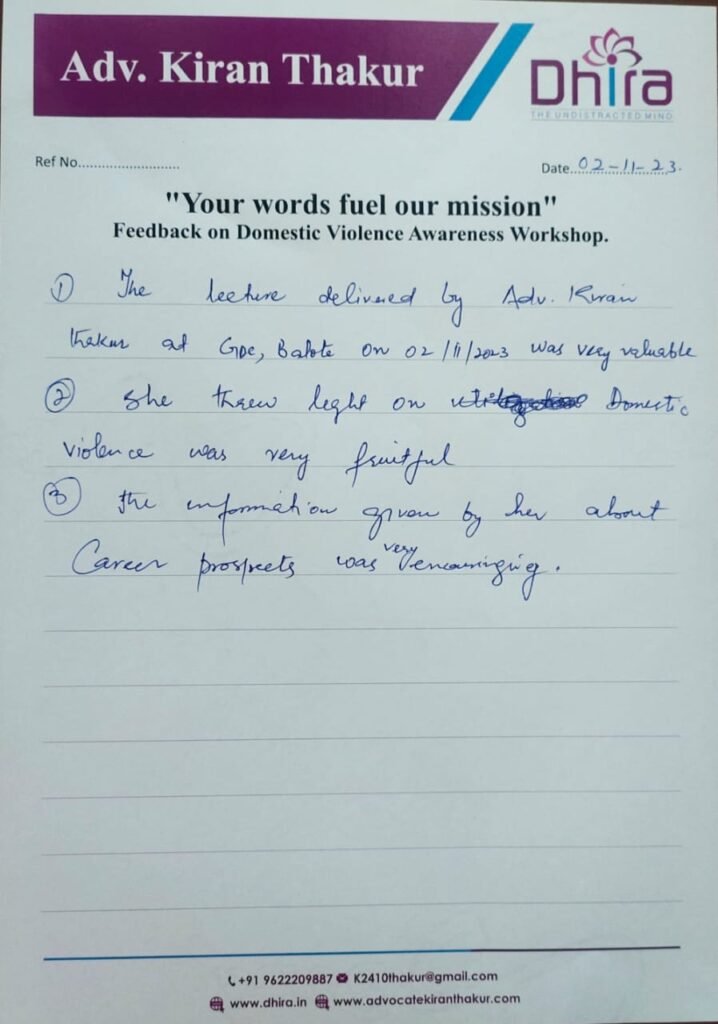 Adv. Kiran Thakur
Dhira
THE UNDISTRACTED MIND
Ref No..........................
Date 02-11-23.
"Your words fuel our mission"
Feedback on Domestic Violence Awareness Workshop.
① The lecture delivered by Adv. Kiran
Thakur at GDC, Balote on 02/11/2023 was very valuable
② She threw light on Domestic
violence was very fruitful
③ The information given by her about
Career prospects was very encouraging.
+91 9622209887 K2410thakur@gmail.com
www.dhira.in www.advocatekiranthakur.com